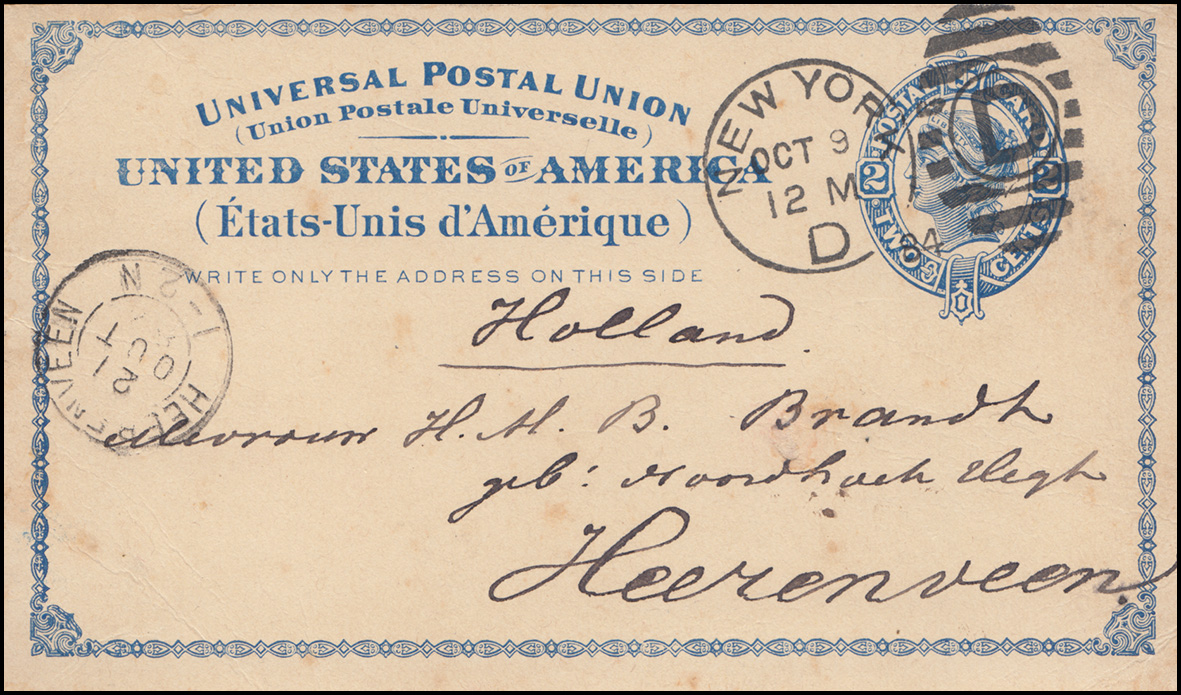 UNIVERSAL POSTAL UNION
(Union Postale Universelle)
UNITED STATES OF AMERICA
(États-Unis d'Amérique)
WRITE ONLY THE ADDRESS ON THIS SIDE
NEW YORK
OCT 9
12 M
D
84
POSTAL CARD
U S
2 2
TWO CENTS
HEERENVEEN
21
OCT
1-2N
Holland.
Mevrouw H. M. B. Brandt
geb: Noordhoek Hegt
Heerenveen.